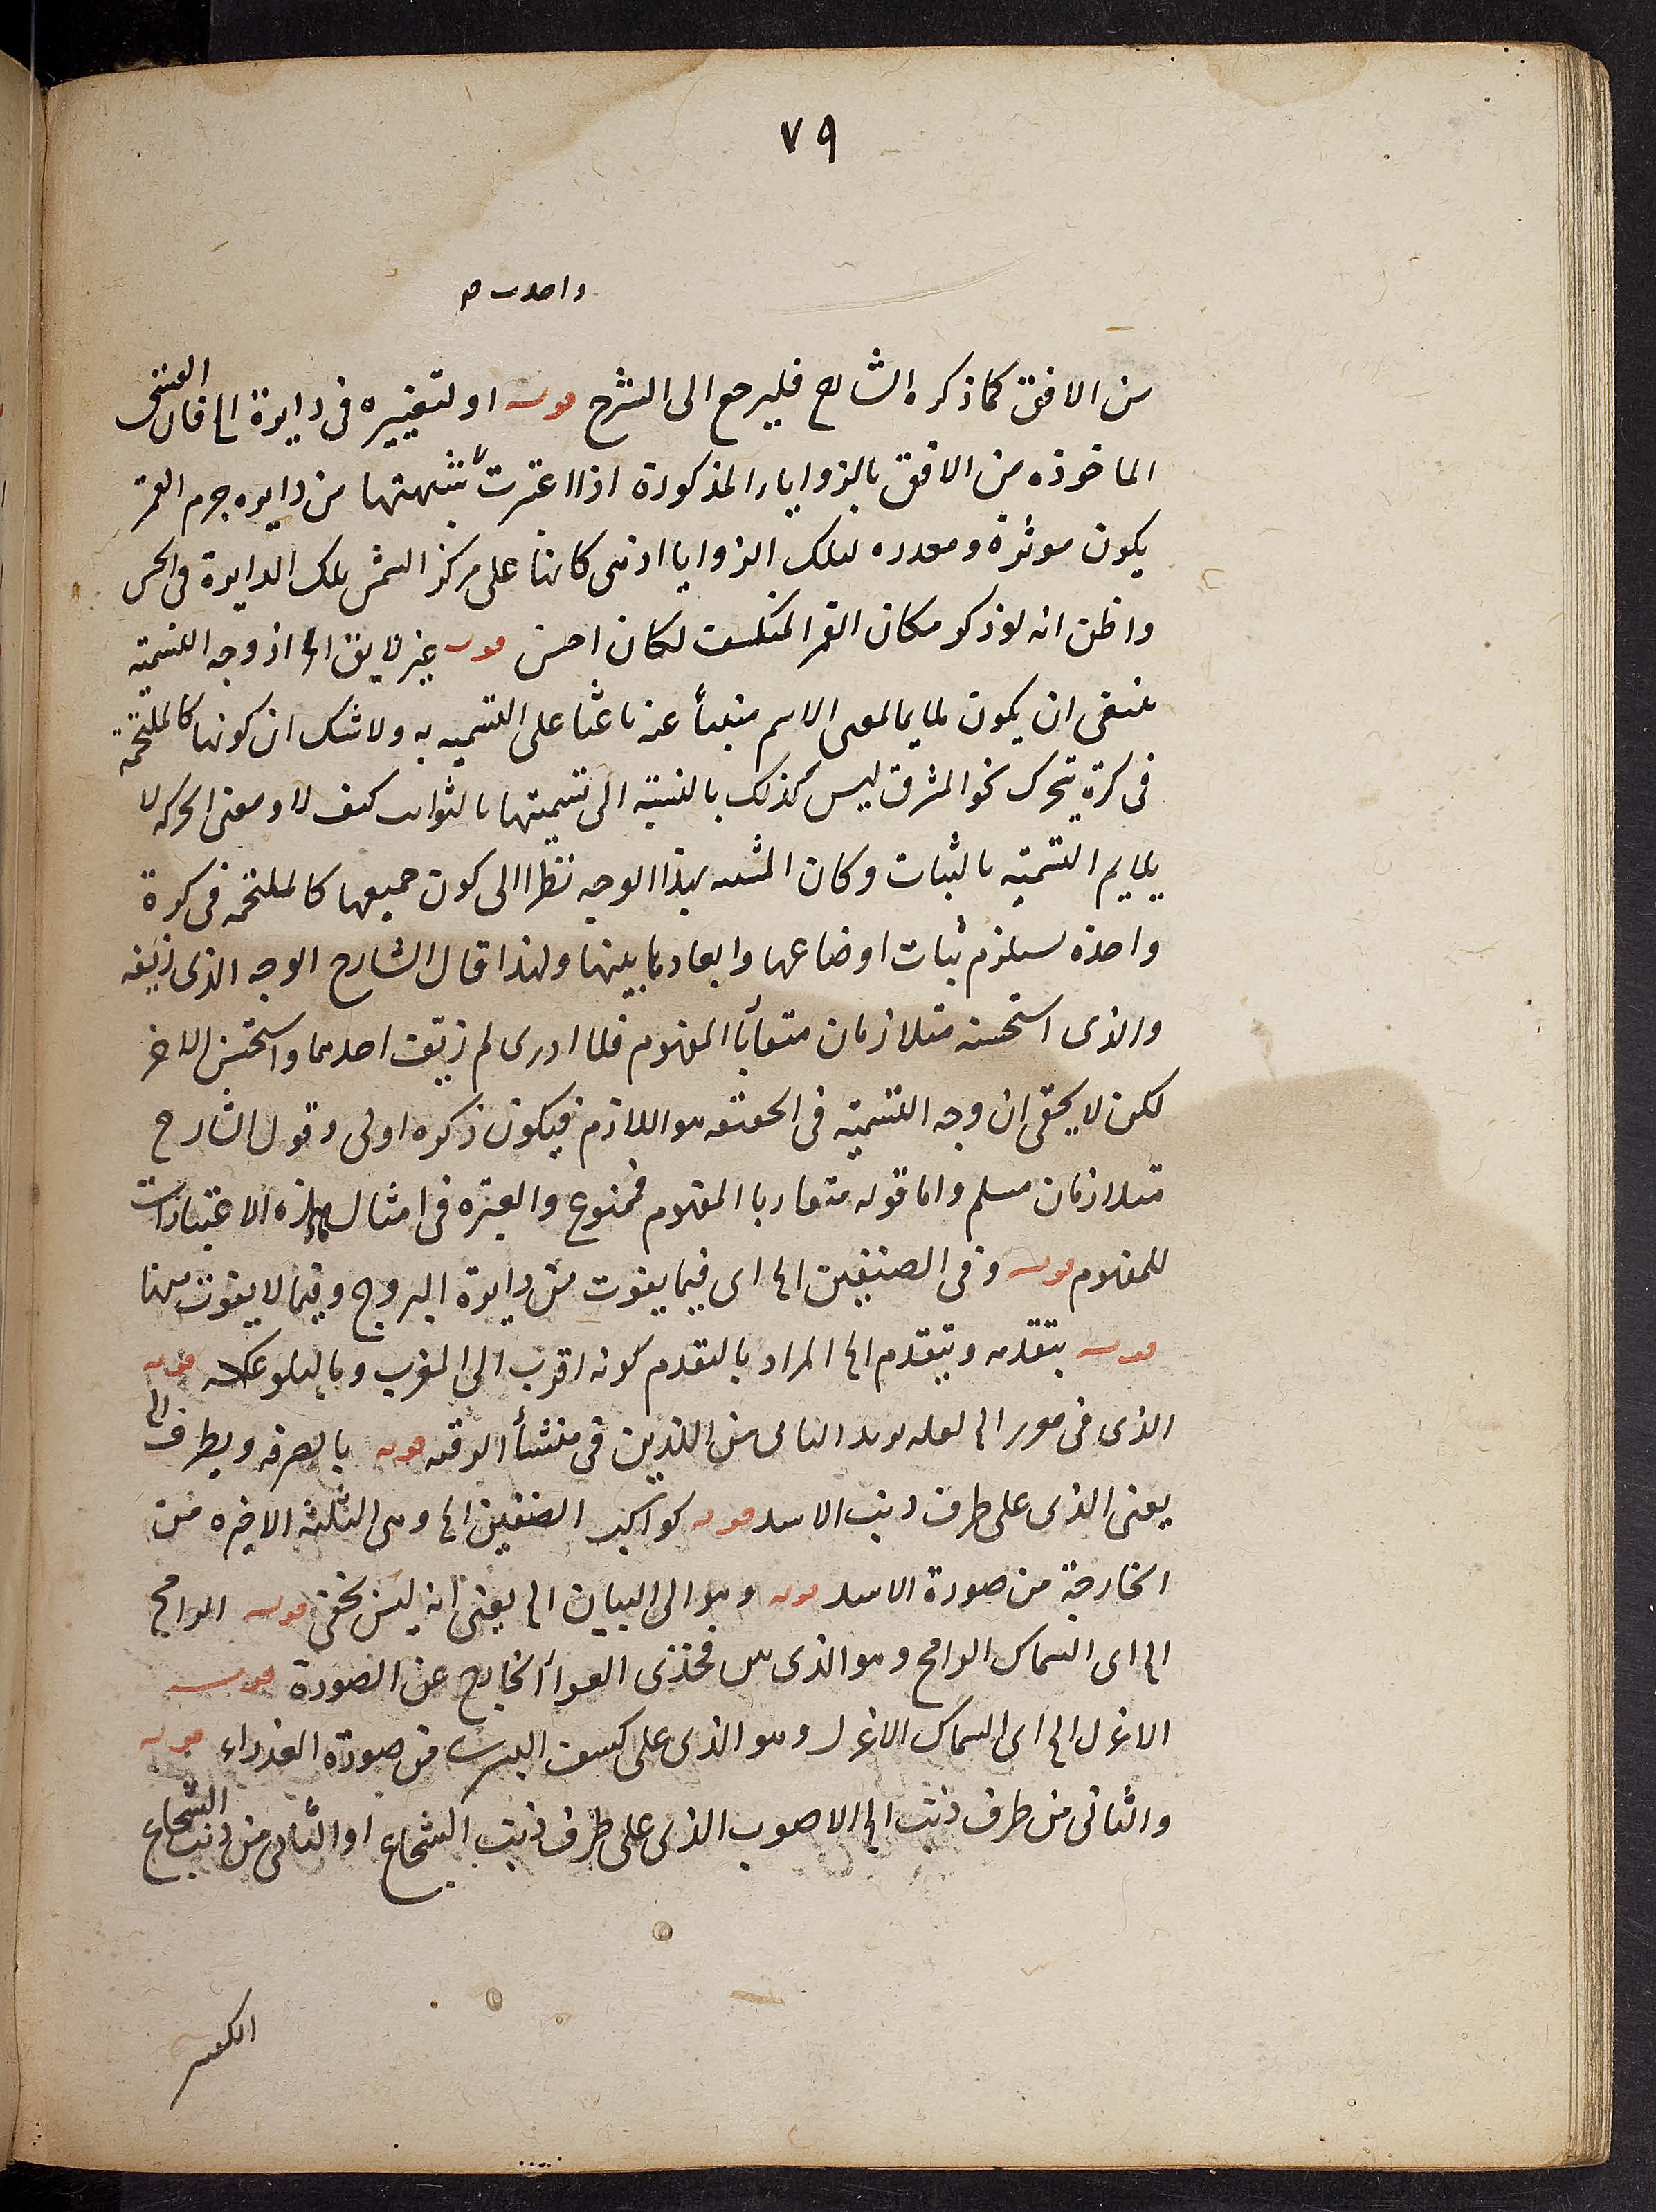 ٧٩
من الافق كما ذكره الشارح فليرجع الى الشرح قوله او لتغييره فى دايرة الخ فان القسى
الماخوذه من الافق بالزوايا المذكورة اذا اعتبرت شبهتها من دايره جرم القمر
يكون موثرة ومعدره لتلك الزوايا اذ هى كانها على مركز الشمس تلك الدايرة فى الحس
واظن انه لو ذكر مكان القمر المنكسف لكان احسن قوله غير لايق الخ اذ وجه التسمية
ينبغى ان يكون ملايما لمعنى الاسم منبأ عنه باعثا على التسميه به ولا شك ان كونها كالملتحمة
فى كرة يتحرك نحو المشرق ليس كذلك بالنسبة الى تسميتها بالثوابت كيف لا ومعنى الحركه لا
يلايم التسمية بالثبات وكان المثبت بهذا الوجه نظرا الى كون جميعها كالملتحمه فى كرة
واحدة يستلزم ثبات اوضاعها وابعاد ما بينها ولهذا قال الشارح الوجه الذى زيفه
والذى استحسنه متلازمان متقاربا المفهوم فلا ادرى لم زيف احدهما واستحسن الاخر
لكن لا يخفى ان وجه التسمية فى الحقيقه هو اللازم فيكون ذكره اولى وقول الشارح
متلازمان مسلم واما قوله متقاربا المفهوم فممنوع والعبرة فى امثال هذه الاعتبارات
للمفهوم قوله وفى الصنفين الخ اى فيما يفوت من دايرة البروج وفيما لا يفوت منها
قوله يتقدمه ويتقدم الخ المراد بالتقدم كونه اقرب الى المغرب وبالتلو عكسه قوله
الذى فى الخ لعله يريد التالى من اللذين فى منشأ قوله بالصرفه وبطرف الخ
يعنى الذى على طرف ذنب الاسد قوله كواكب الضفيرة الخ وهى الثلثة الاخيره من
الخارجة من صورة الاسد قوله وهو الى البيان الخ يعنى انه ليس بخفى قوله الرامح
الخ اى السماك الرامح وهو الذى بين فخذى العوا الخارج عن الصورة قوله
الاعزل الخ اى السماك الاعزل وهو الذى على كتف اليسرى من صورة العذراء قوله
والثانى من طرف ذنب الخ الاصوب الذى على طرف ذنب الشجاع او الثانى من ذنب الشجاع